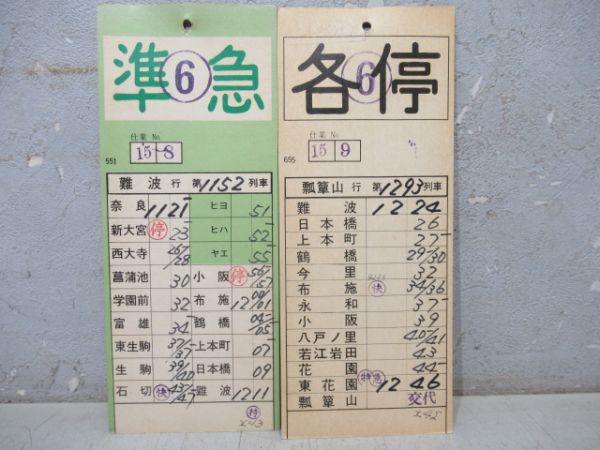 準急
6
仕業 No.
15-8
551
難波行 第1152列車
奈良 1121 ヒヨ 51
新大宮 停 23 ヒハ 52
西大寺 28 ヤエ 55
菖蒲池 30 小阪 停 56/57
学園前 32 布施 1200/01
富雄 34 鶴橋 04/05
東生駒 37 上本町 07
生駒 39/40 日本橋 09
石切 快 難波 1211
各停
6
仕業 No.
15 9
655
瓢簞山行 第1293列車
難波 1224
日本橋 26
上本町 27
鶴橋 29/30
今里 32
布施 快 34/36
永和 37
小阪 39
八戸ノ里 40/41
若江岩田 43
花園 44
東花園 特急 1246
瓢簞山 交代